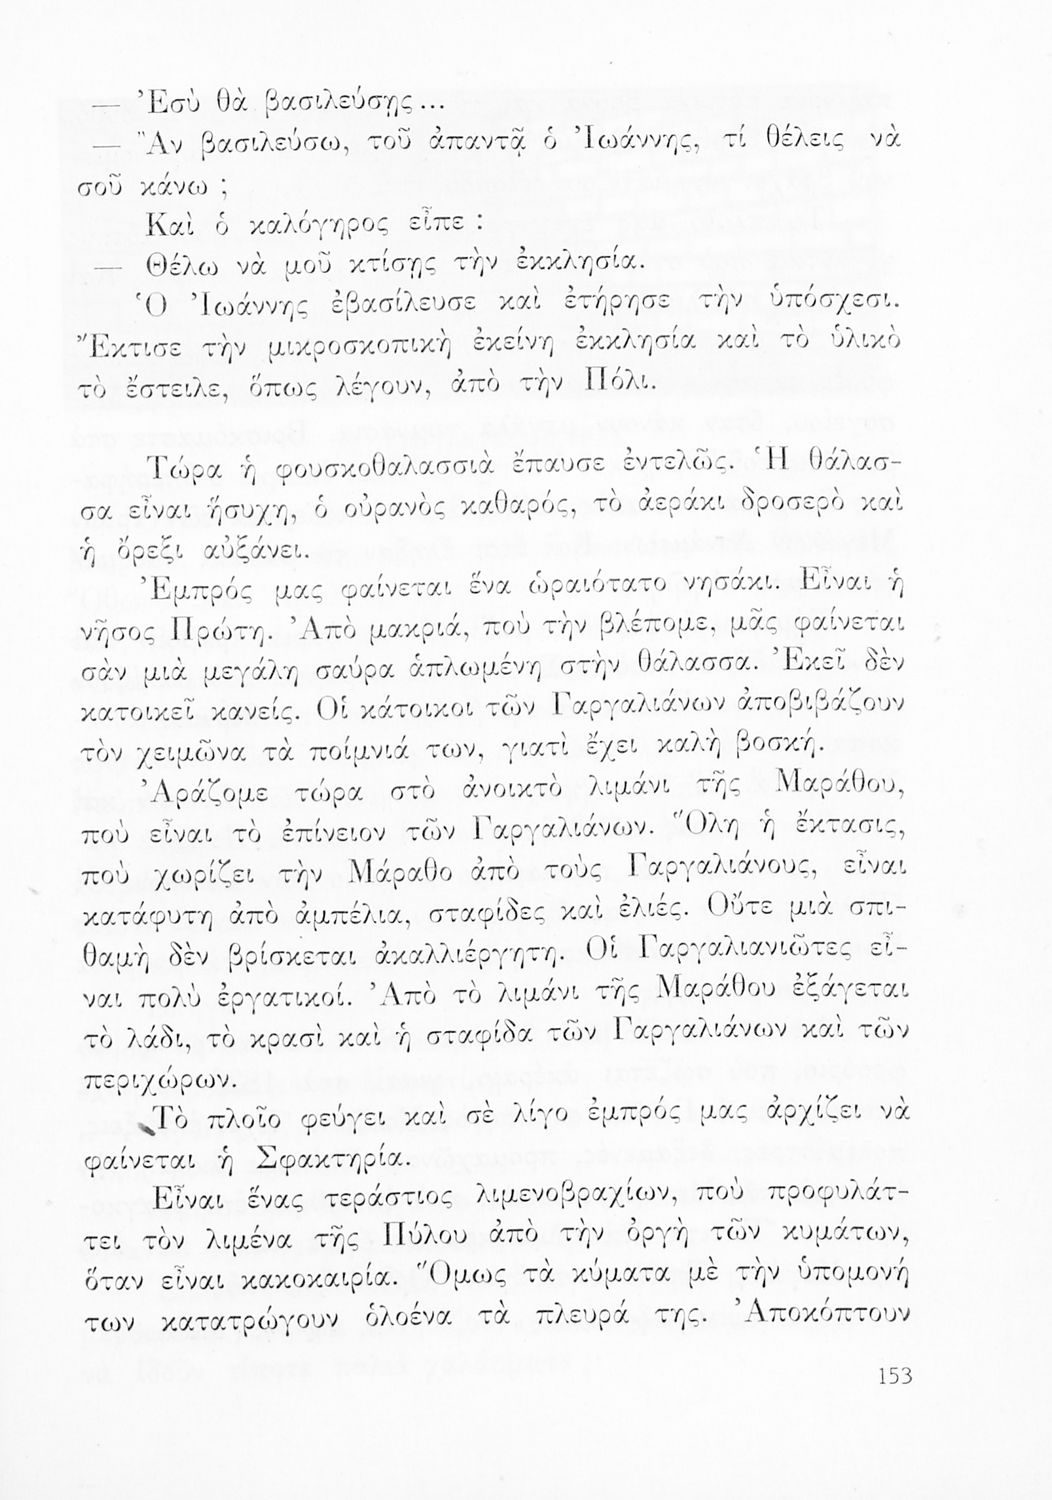 — Ἐσὺ θὰ βασιλεύσῃς...
— Ἂν βασιλεύσω, τοῦ ἀπαντᾷ ὁ Ἰωάννης, τί θέλεις νὰ
σοῦ κάνω ;
Καὶ ὁ καλόγηρος εἶπε :
— Θέλω νὰ μοῦ κτίσῃς τὴν ἐκκλησία.
Ὁ Ἰωάννης ἐβασίλευσε καὶ ἐτήρησε τὴν ὑπόσχεσι.
Ἔκτισε τὴν μικροσκοπικὴ ἐκείνη ἐκκλησία καὶ τὸ ὑλικὸ
τὸ ἔστειλε, ὅπως λέγουν, ἀπὸ τὴν Πόλι.
Τώρα ἡ φουσκοθαλασσιὰ ἔπαυσε ἐντελῶς. Ἡ θάλασ-
σα εἶναι ἥσυχη, ὁ οὐρανὸς καθαρός, τὸ ἀεράκι δροσερὸ καὶ
ἡ ὄρεξι αὐξάνει.
Ἐμπρός μας φαίνεται ἕνα ὡραιότατο νησάκι. Εἶναι ἡ
νῆσος Πρώτη. Ἀπὸ μακριά, ποὺ τὴν βλέπομε, μᾶς φαίνεται
σὰν μιὰ μεγάλη σαύρα ἁπλωμένη στὴν θάλασσα. Ἐκεῖ δὲν
κατοικεῖ κανείς. Οἱ κάτοικοι τῶν Γαργαλιάνων ἀποβιβάζουν
τὸν χειμῶνα τὰ ποίμνιά των, γιατὶ ἔχει καλὴ βοσκή.
Ἀράζομε τώρα στὸ ἀνοικτὸ λιμάνι τῆς Μαράθου,
ποὺ εἶναι τὸ ἐπίνειον τῶν Γαργαλιάνων. Ὅλη ἡ ἔκτασις,
ποὺ χωρίζει τὴν Μάραθο ἀπὸ τοὺς Γαργαλιάνους, εἶναι
κατάφυτη ἀπὸ ἀμπέλια, σταφίδες καὶ ἐλιές. Οὔτε μιὰ σπι-
θαμὴ δὲν βρίσκεται ἀκαλλιέργητη. Οἱ Γαργαλιανιῶτες εἶ-
ναι πολὺ ἐργατικοί. Ἀπὸ τὸ λιμάνι τῆς Μαράθου ἐξάγεται
τὸ λάδι, τὸ κρασὶ καὶ ἡ σταφίδα τῶν Γαργαλιάνων καὶ τῶν
περιχώρων.
Τὸ πλοῖο φεύγει καὶ σὲ λίγο ἐμπρός μας ἀρχίζει νὰ
φαίνεται ἡ Σφακτηρία.
Εἶναι ἕνας τεράστιος λιμενοβραχίων, ποὺ προφυλάτ-
τει τὸν λιμένα τῆς Πύλου ἀπὸ τὴν ὀργὴ τῶν κυμάτων,
ὅταν εἶναι κακοκαιρία. Ὅμως τὰ κύματα μὲ τὴν ὑπομονή
των κατατρώγουν ὁλοένα τὰ πλευρά της. Ἀποκόπτουν
153